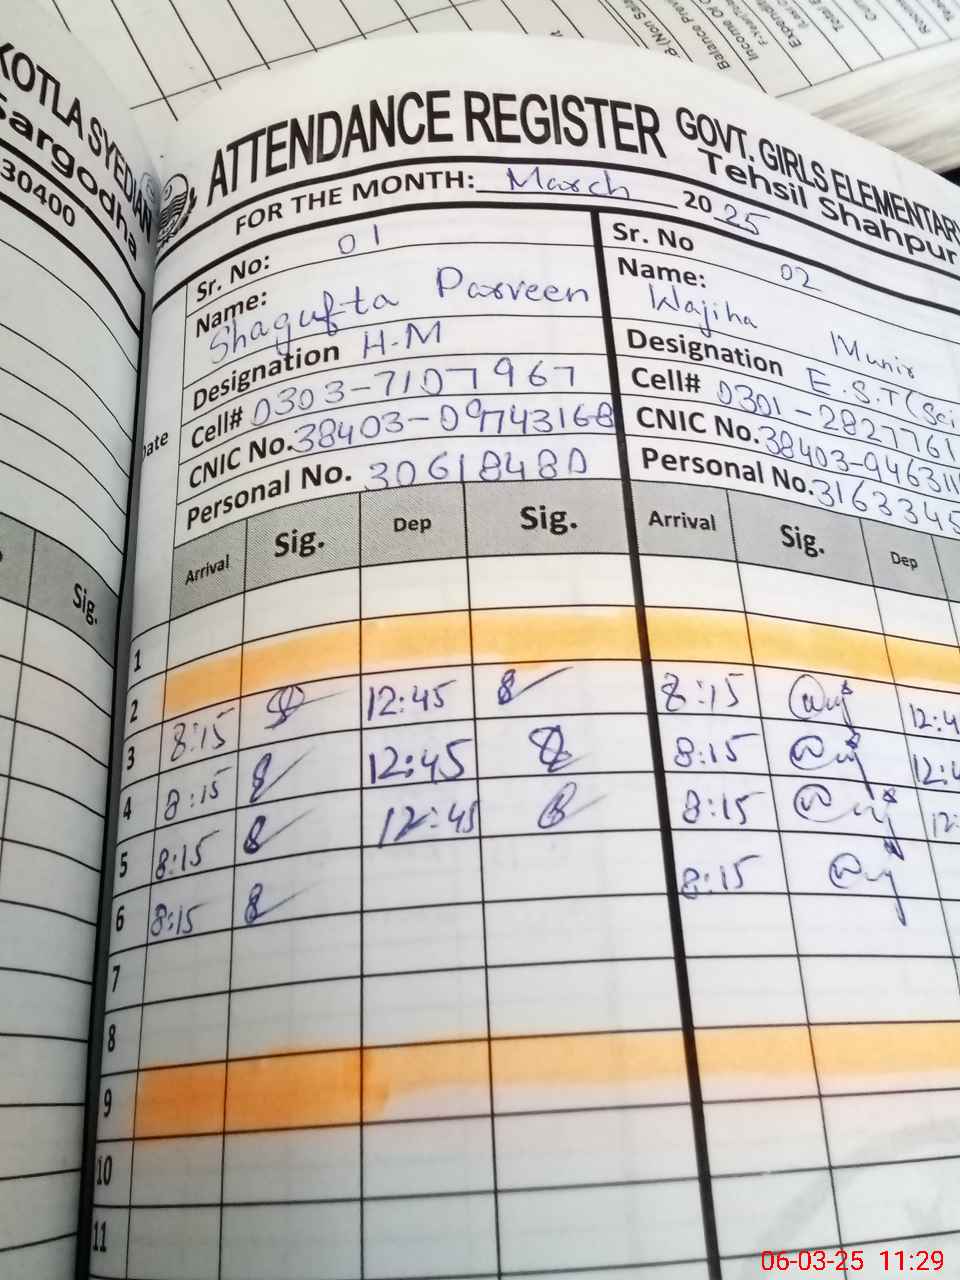 KOTLA SYEDIAN
Sargodha
30400
Sig.
ATTENDANCE REGISTER GOVT. GIRLS ELEMENTARY
Tehsil Shahpur
FOR THE MONTH: March 2025
Sr. No: 01
Name: Shagufta Parveen
Designation H.M
Cell# 0303-7107967
CNIC No. 38403-09743168
Personal No. 30618480
Sr. No 02
Name: Wajiha Munir
Designation E.S.T (Sci
Cell# 0301-2827761
CNIC No. 38403-946311
Personal No. 3163345
Date
Arrival Sig. Dep Sig. Arrival Sig. Dep
1
2
3 8:15 12:45 8:15 12:4
4 8:15 12:45 8:15 12:4
5 8:15 12:45 8:15 12:
6 8:15 8:15
7
8
9
10
11
06-03-25 11:29